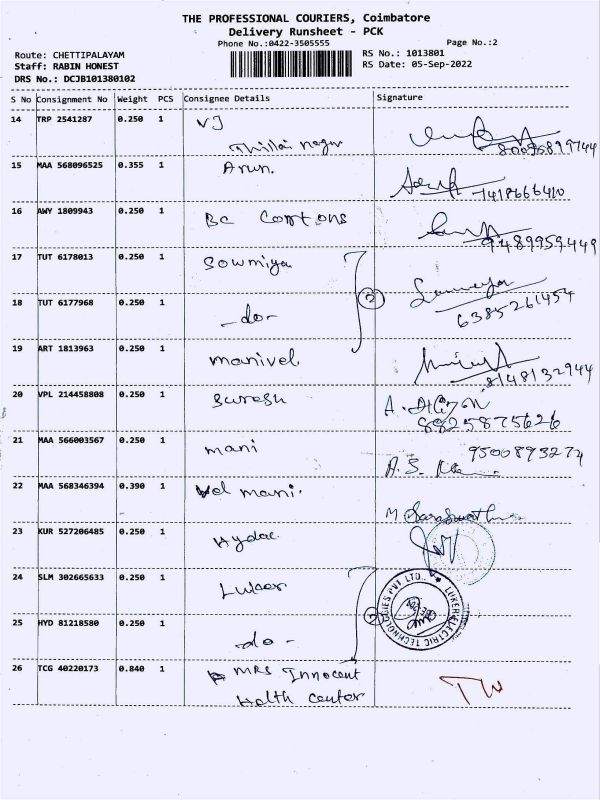 THE PROFESSIONAL COURIERS, Coimbatore
Delivery Runsheet - PCK
Phone No.:0422-3505555
Page No.:2
Route: CHETTIPALAYAM
RS No.: 1013801
Staff: RABIN HONEST
RS Date: 05-Sep-2022
DRS No.: DCJB101380102
S No Consignment No Weight PCS Consignee Details Signature
14 TRP 2541287 0.250 1 VJ
Thillai nagar 8009589
15 MAA 568096525 0.355 1 Arun.
7418666410
16 AWY 1809943 0.250 1 BC
9489959449
17 TUT 6178013 0.250 1 Sowmiya
2 Sowmiya
18 TUT 6177968 0.250 1 -do- 6385261454
19 ART 1813963 0.250 1 manivel
8148132944
20 VPL 214458808 0.250 1 Suresh A.
8825875626
21 MAA 566003567 0.250 1 mani 9500893274
A.S.
22 MAA 568346394 0.390 1 Vel mani.
M Saraswathi
23 KUR 527206485 0.250 1
24 SLM 302665633 0.250 1
LUKER ELECTRIC TECHNOLOGIES PVT LTD.,
25 HYD 81218580 0.250 1 -do-
26 TCG 40220173 0.840 1 MRS Innocent
Helth center